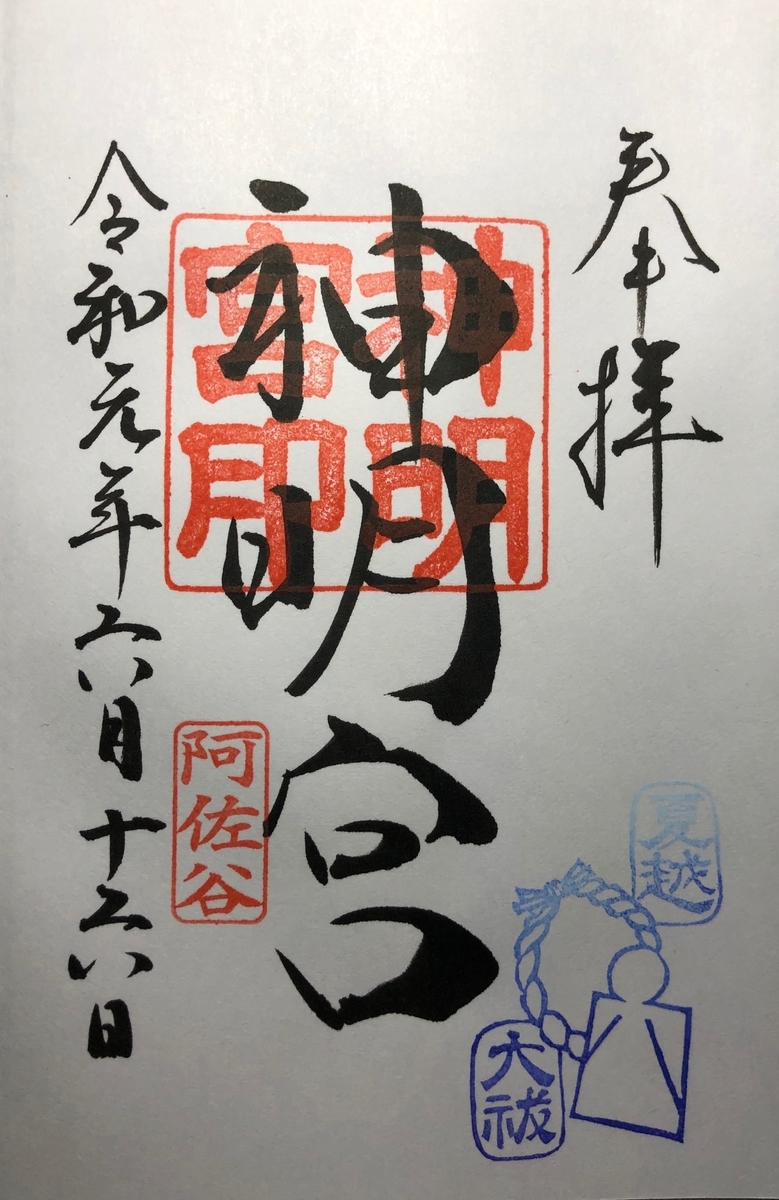 奉拝
神明宮
神明
宮印
阿佐谷
令和元年六月十六日
夏越
大祓